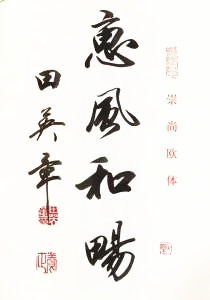 崇尚欧体
惠風和暢
田英章